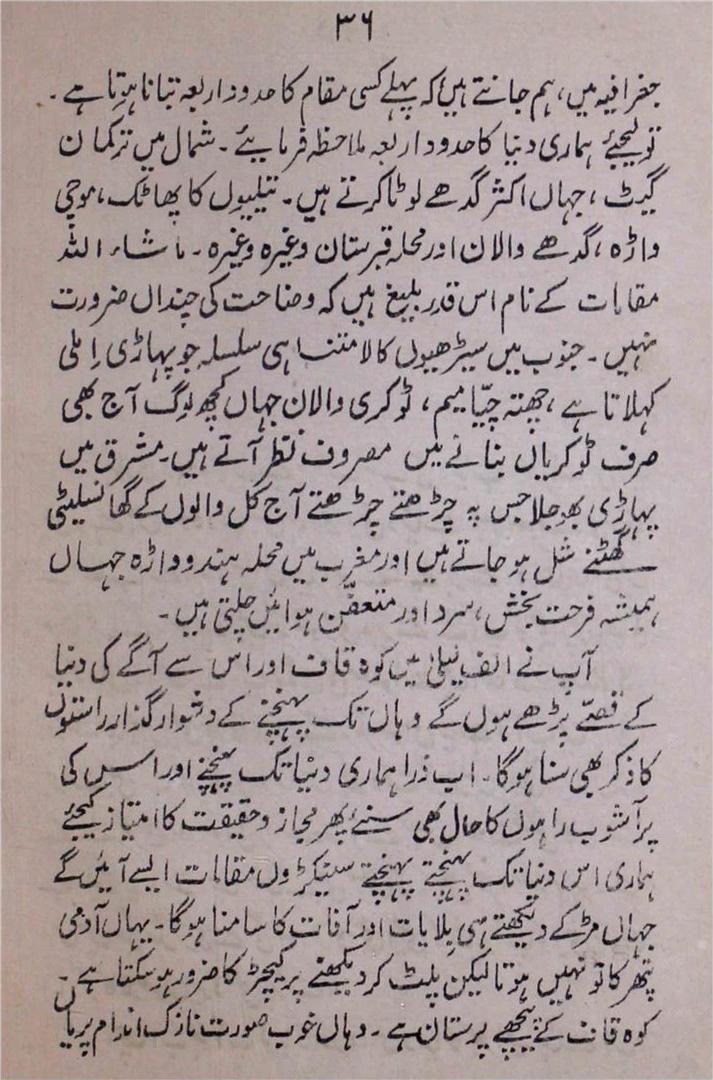 ۳۶
جغرافیہ میں، ہم جانتے ہیں کہ پہلے کسی مقام کا حدود اربعہ بتانا ہوتا ہے۔
تو لیجئے ہماری دنیا کا حدود اربعہ ملاحظہ فرمایئے۔ شمال میں ترکمان
گیٹ، جہاں اکثر گدھے لوٹا کرتے ہیں۔ تیلیوں کا پھاٹک، موچی
واڑہ، گدھے والان اور محلہ قبرستان وغیرہ وغیرہ۔ ماشاء اللہ
مقامات کے نام اس قدر بلیغ ہیں کہ وضاحت کی چنداں ضرورت
نہیں۔ جنوب میں سیڑھیوں کا لامتناہی سلسلہ جو پہاڑی اِملی
کہلاتا ہے، چھتہ چیّا میم، ٹوکری والان جہاں کچھ لوگ آج بھی
صرف ٹوکریاں بنانے میں مصروف نظر آتے ہیں۔ مشرق میں
پہاڑی بھوجلا جس پہ چڑھتے چڑھتے آج کل والوں کے گھا نسلیٹی
گھٹنے شل ہو جاتے ہیں اور مغرب میں محلہ ہندو واڑہ جہاں
ہمیشہ فرحت بخش، سرد اور متعفّن ہوائیں چلتی ہیں۔
آپ نے الف لیلیٰ میں کوہ قاف اور اس سے آگے کی دنیا
کے قصّے پڑھے ہوں گے وہاں تک پہنچنے کے دشوار گذار راستوں
کا ذکر بھی سنا ہوگا۔ اب ذرا ہماری دنیا تک پہنچنے اور اس کی
پر آشوب راہوں کا حال بھی سنئے پھر مجاز و حقیقت کا امتیاز کیجئے
ہماری اس دنیا تک پہنچتے پہنچتے سینکڑوں مقامات ایسے آئیں گے
جہاں مڑ کے دیکھتے ہی بلایات اور آفات کا سامنا ہوگا۔ یہاں آدمی
پتھر کا تو نہیں ہوتا لیکن پلٹ کر دیکھنے پر کیچڑ کا ضرور ہو سکتا ہے۔
کوہ قاف کے پیچھے پرستان ہے۔ وہاں خوب صورت نازک اندام پریاں